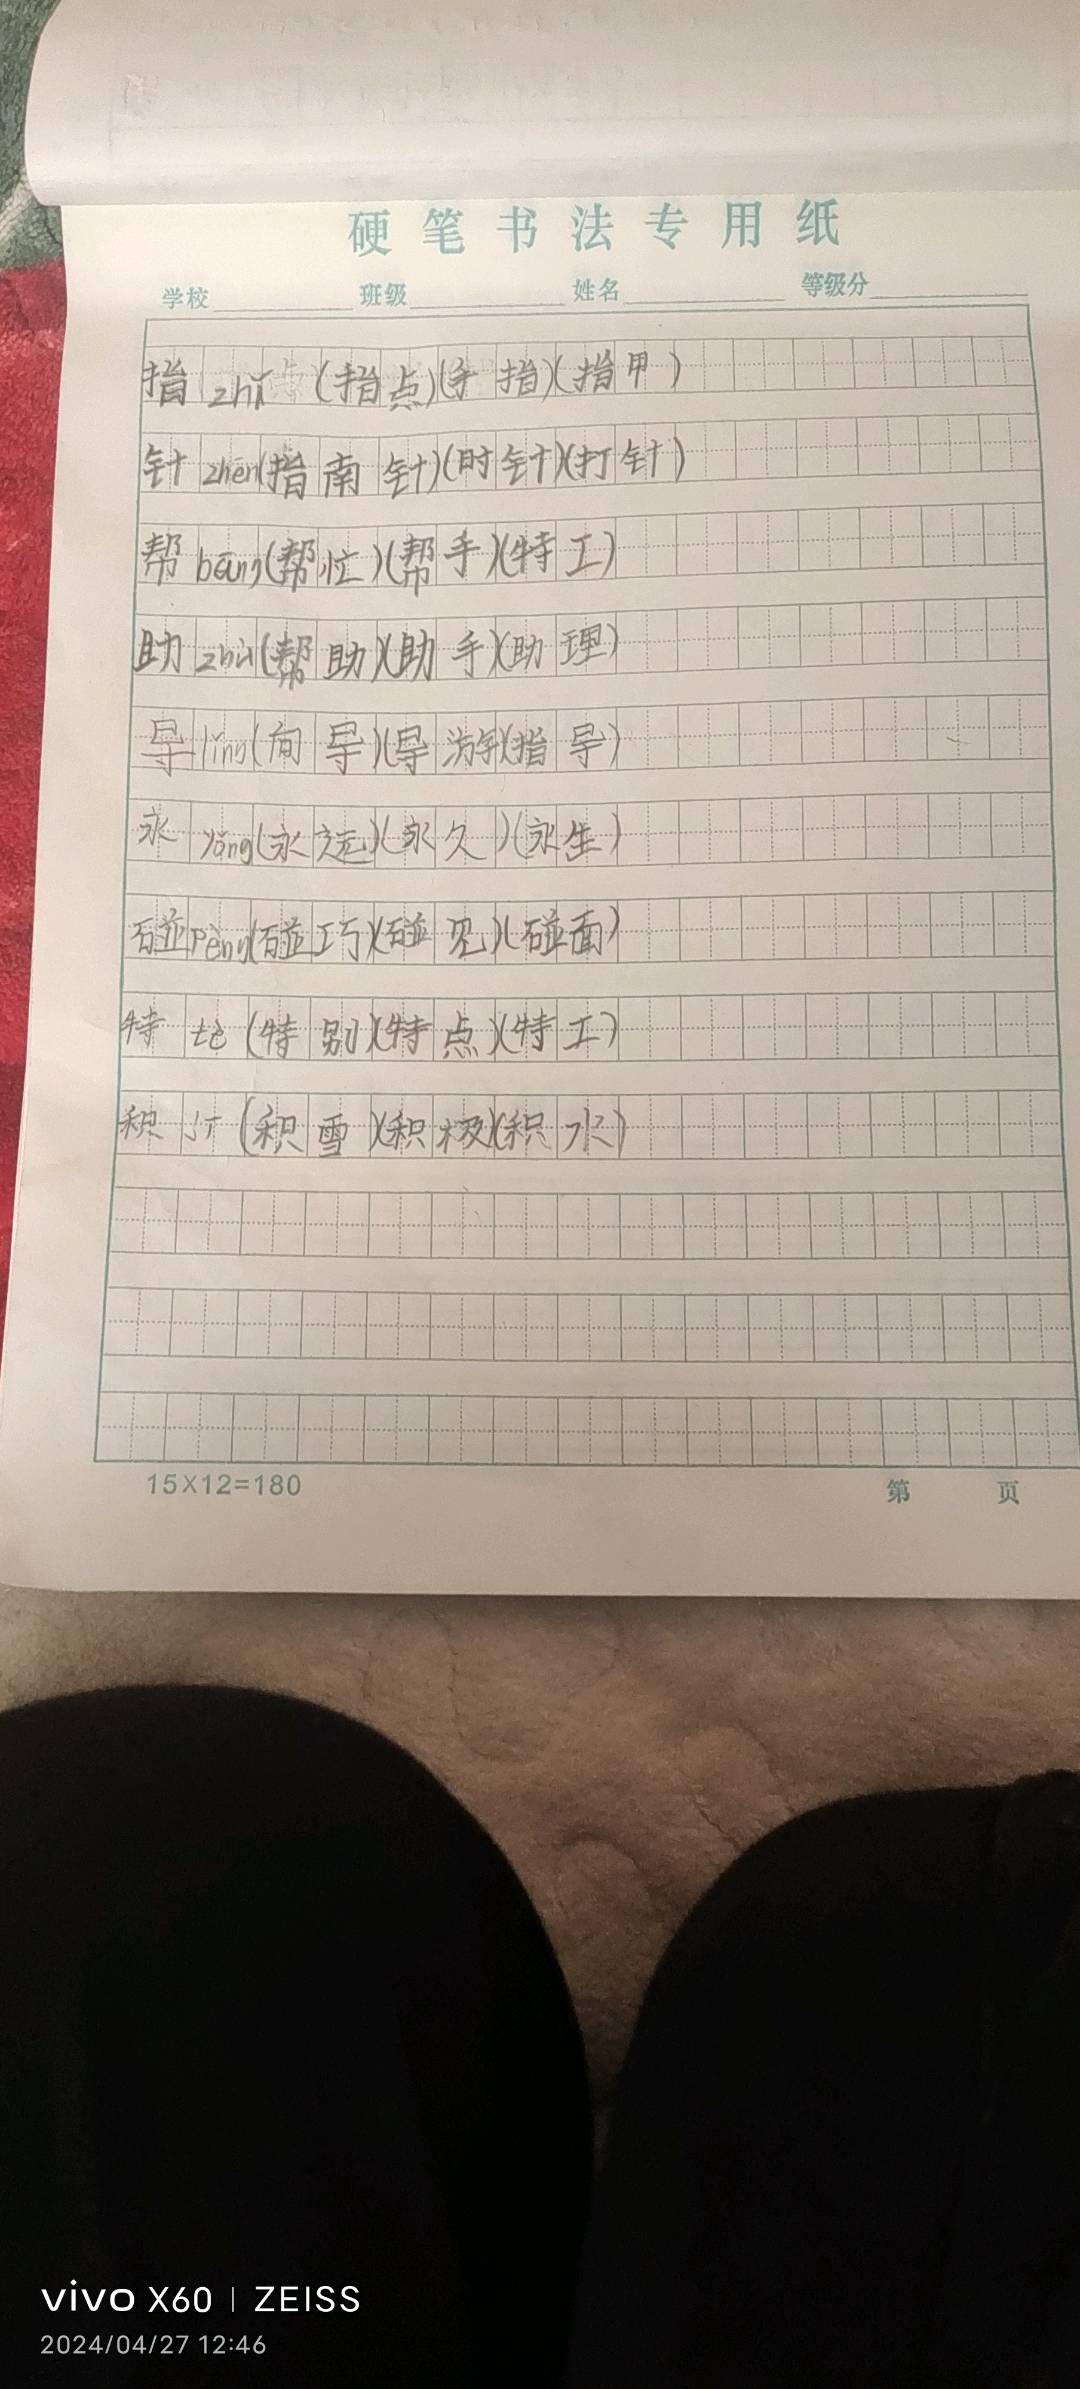 硬笔书法专用纸
学校 班级 姓名 等级分
指 zhǐ (指点)(手指)(指甲)
针 zhēn(指南针)(时针)(打针)
帮 bāng(帮忙)(帮手)(特工)
助 zhù(帮助)(助手)(助理)
导 lǐng(向导)(导游)(指导)
永 yǒng(永远)(永久)(永生)
碰 pèng(碰巧)(碰见)(碰面)
特 tè (特别)(特点)(特工)
积 jī (积雪)(积极)(积水)
15X12=180
第 页
vivo X60 | ZEISS
2024/04/27 12:46